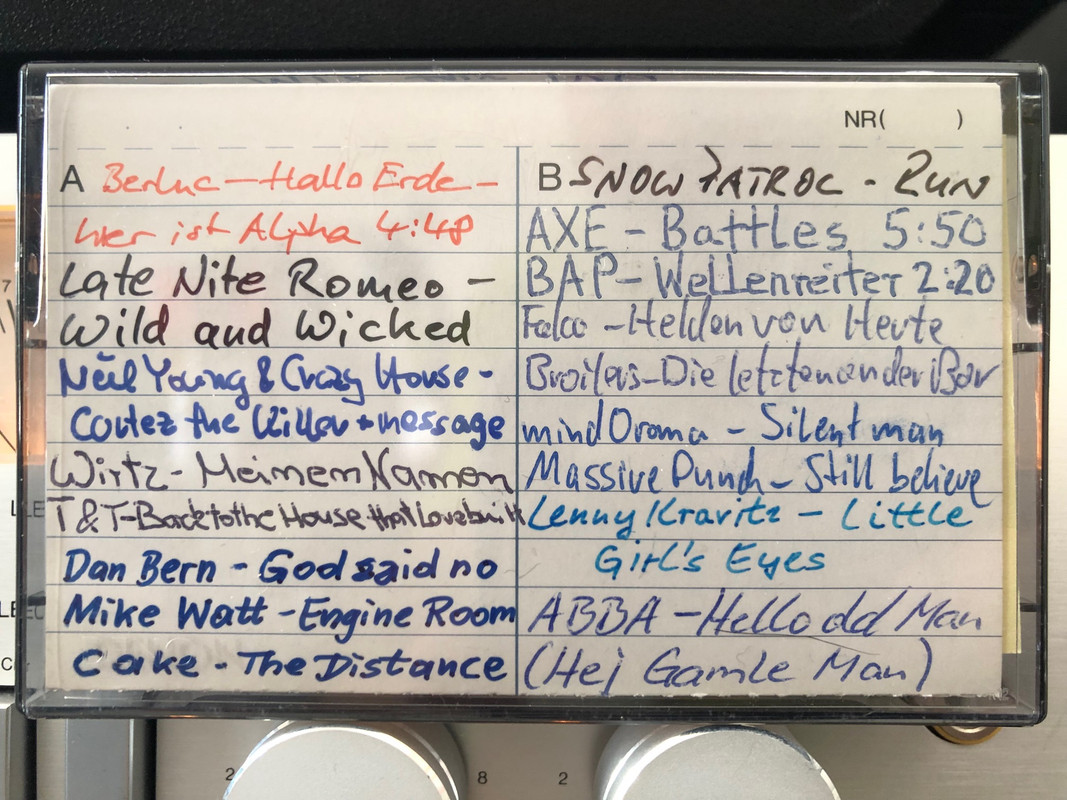 NR( )
A Berluc - Hallo Erde -
hier ist Alpha 4:48
Late Nite Romeo -
Wild and Wicked
Neil Young & Crazy House -
Cortez the Killer + message
Wirtz - Meinem Namen
T&T - Back to the House that Love built
Dan Bern - God said no
Mike Watt - Engine Room
Cake - The Distance
B SNOW PATROL - RUN
AXE - Battles 5:50
BAP - Wellenreiter 2:20
Falco - Helden von Heute
Broilers - Die letzten an der Bar
mind Orama - Silent man
Massive Punch - Still believe
Lenny Kravitz - Little
Girl's Eyes
ABBA - Hello old Man
(Hej Gamle Man)
2
8
2
7